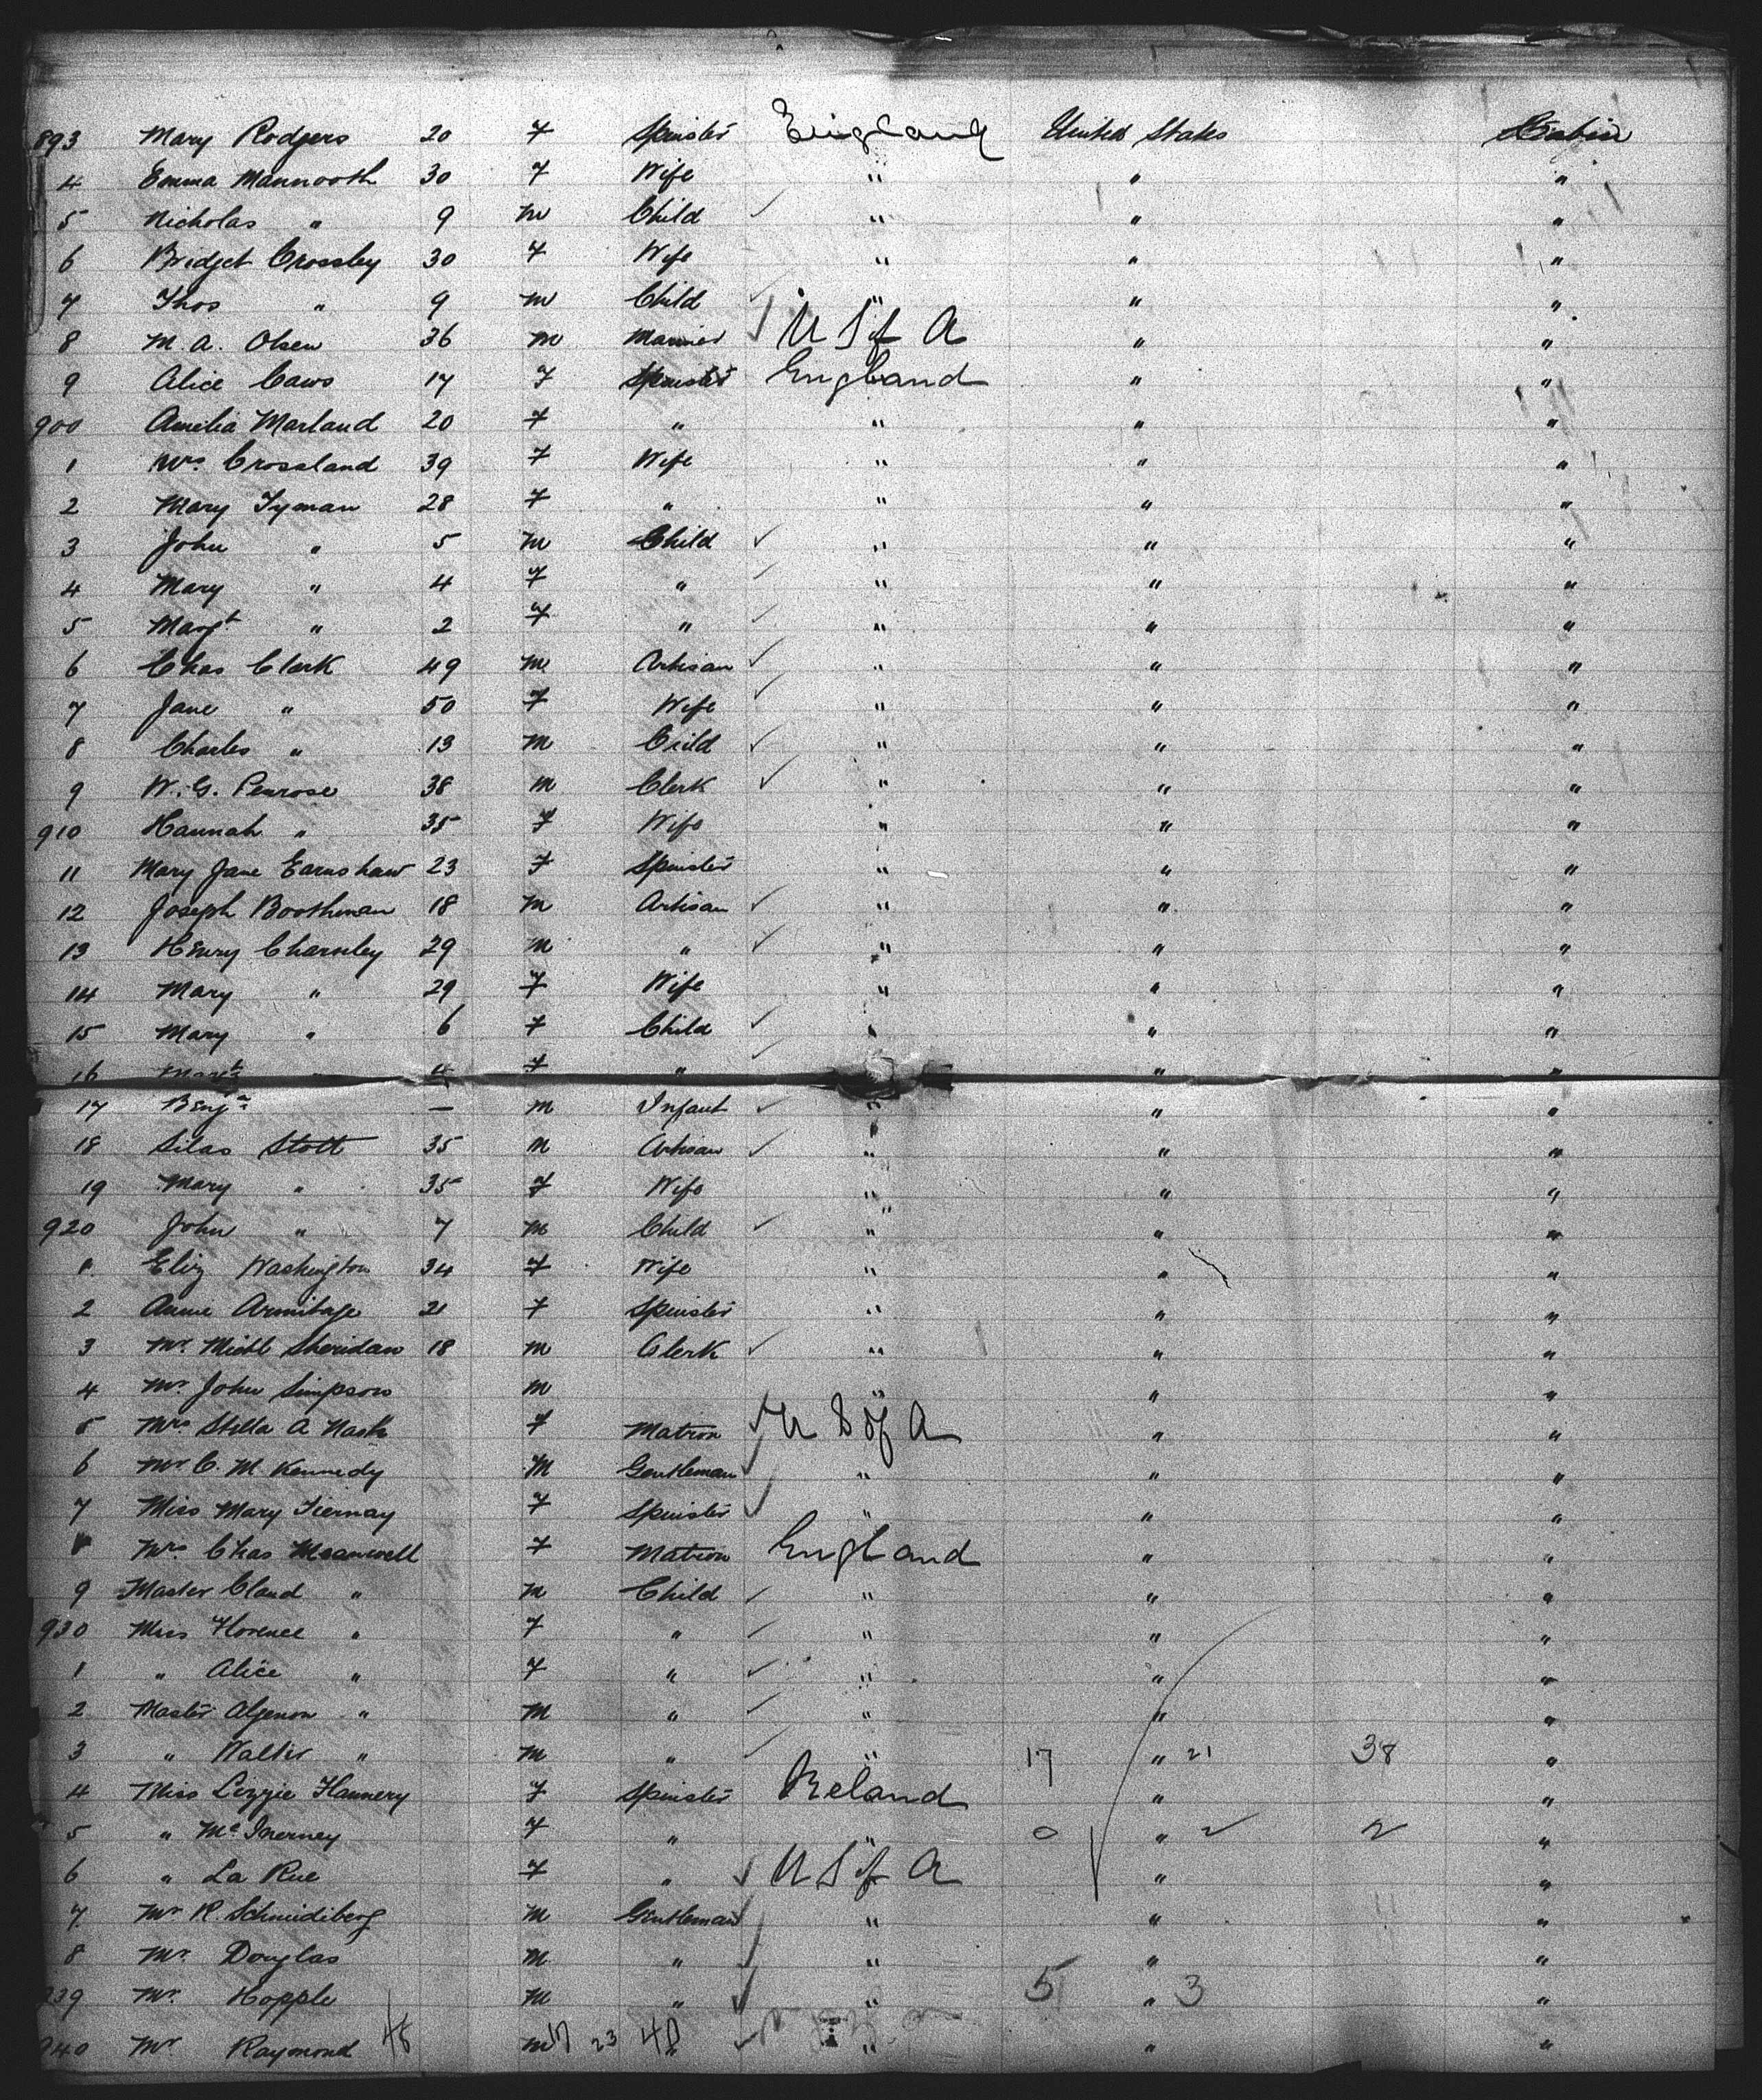 893 Mary Rodgers 20 F Spinster England United States Cabin
4 Emma Mannooth 30 F Wife " " "
5 Nicholas " 9 M Child " " "
6 Bridget Crossley 30 F Wife " " "
7 Thos " 9 M Child " " "
8 M. A. Olsen 36 M Mariner U S of A " "
9 Alice Caws 17 F Spinster England " "
900 Amelia Marland 20 F " " " "
1 Mrs. Crossland 39 F Wife " " "
2 Mary Tyman 28 F " " " "
3 John " 5 M Child " " "
4 Mary " 4 F " " " "
5 Margt " 2 F " " " "
6 Chas Clark 49 M Artisan " " "
7 Jane " 50 F Wife " " "
8 Charles " 13 M Child " " "
9 W. G. Penrose 38 M Clerk " " "
910 Hannah " 35 F Wife " " "
11 Mary Jane Earnshaw 23 F Spinster " " "
12 Joseph Boothman 18 M Artisan " " "
13 Henry Charnley 29 M " " " "
14 Mary " 29 F Wife " " "
15 Mary " 6 F Child " " "
16 Margt " 4 F " " "
17 Benjn — M Infant " " "
18 Silas Stott 35 M Artisan " " "
19 Mary " 35 F Wife " " "
920 John " 7 M Child " " "
1 Eliz Washington 34 F Wife " " "
2 Annie Armitage 21 F Spinster " " "
3 Mr. Michl Sheridan 18 M Clerk " " "
4 Mr. John Simpson M " " "
5 Mrs Stella A Nash F Matron U S of A " "
6 Mr C. M. Kennedy M Gentleman " " "
7 Miss Mary Tiernay F Spinster " " "
Mrs. Chas Meanwell F Matron England " "
9 Master Claud " M Child " " "
930 Miss Florence " F " " " "
1 " Alice " F " " " "
2 Master Algenon " M " " " "
3 " Walter " M " " 17 " 21 38 "
4 Miss Lizzie Flannery F Spinster Ireland " "
5 " McInerney F " " 0 " 2 2 "
6 " La Rue F " U S of A " "
7 Mr R. Schmidiberg M Gentleman " " "
8 Mr. Douglas M " " " "
939 Mr. Hopple M " " 5 " 3 "
940 Mr Raymond 48 M 17 23 40 " " " "